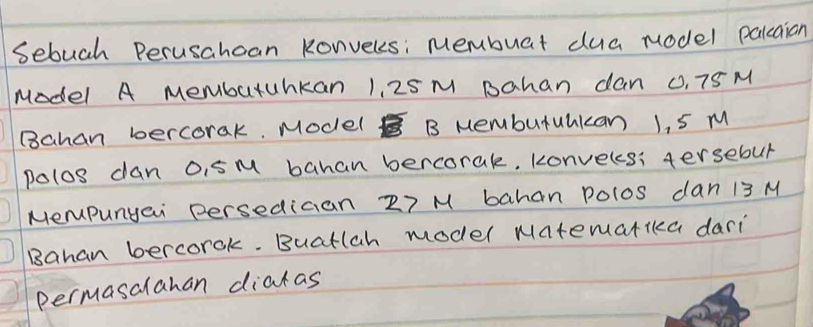 Sebuah Perusahaan Konveksi Membuat dua Model pakaian
Model A Membutuhkan 1,25 M Bahan dan 0,75 M
Bahan bercorak. Model B Membutuhkan 1,5 M
polos dan 0,5 M bahan bercorak. Konveksi tersebut
Mempunyai Persediaan 27 M bahan polos dan 13 M
Bahan bercorak. Buatlah model Matematika dari
Permasalahan diatas